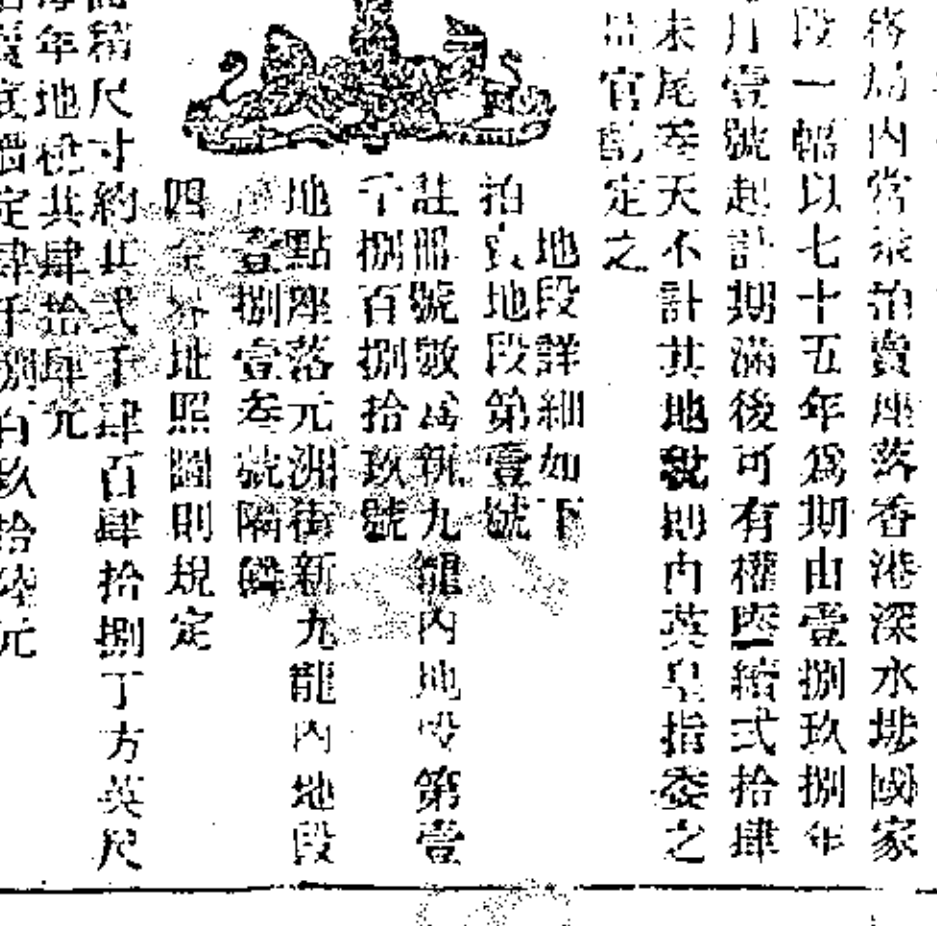 務局內當衆拍賣座落香港深水埗國家
段一幅以七十五年爲期由壹捌玖捌年
月壹號起計期滿後可有權再續弍拾肆
未尾叁天不計其地稅則內英皇指委之
官酌定之
地段詳細如下
拍賣地段第壹號
註冊號數爲新九龍內地段第壹
千捌百捌拾玖號
地點座落元洲街新九龍內地段
壹捌壹叁號隔鄰
四至界址照圖則規定
積尺寸約共弍千肆百肆拾捌丁方英尺
年地稅共肆拾肆元
底價定肆千捌百玖拾陸元